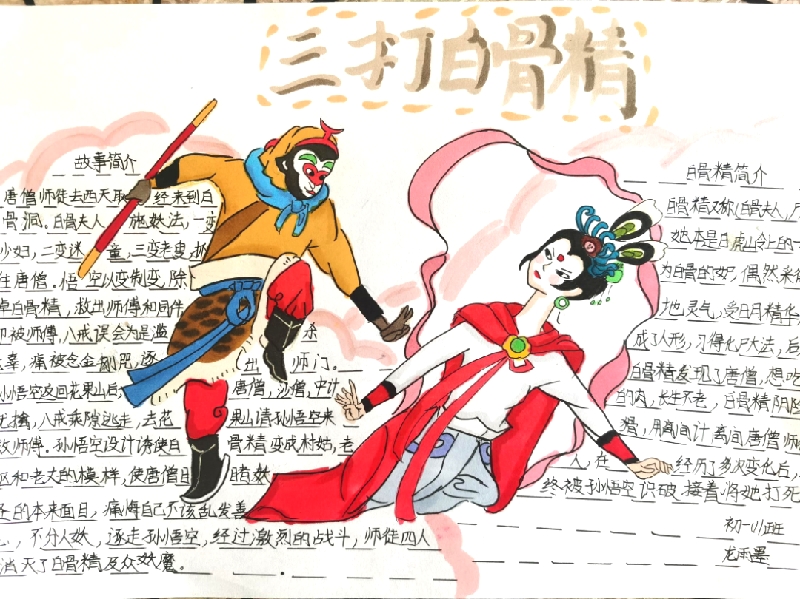 三打白骨精
故事简介
唐僧师徒去西天取 经来到白
骨洞.白骨夫人 施妖法,一变
少妇,二变迷 童,三变老叟,
住唐僧.悟空以变制变,除
白骨精,救出师傅和同伴
被师傅,八戒误会为是滥 杀
辜,痛被念金 咒,逐 出 师门。
孙悟空返回花果山后, 唐僧,沙僧,中计
擒,八戒乘隙逃走,去花 果山请孙悟空来
救师傅.孙悟空设计诱使白 骨精变成村姑,老
和老丈的模样,使唐僧目 睹妖
的本来面目,痛悔自己不该乱发善
,不分人妖,逐走孙悟空,经过激烈的战斗,师徒四人
消灭了白骨精及众妖魔。
白骨精简介
白骨精又称(白骨夫人,尸
她本是白虎山岭上的一
为白骨的女尸,偶然采
地灵气,受日月精化,
成了人形,习得化尸大法,后
白骨精发现了唐僧,想吃
的肉,长生不老,白骨精阴险
猾,用离间计离间唐僧师
人,在 经历了多次变化后,
终被孙悟空识破,接着将她打死
初一 班